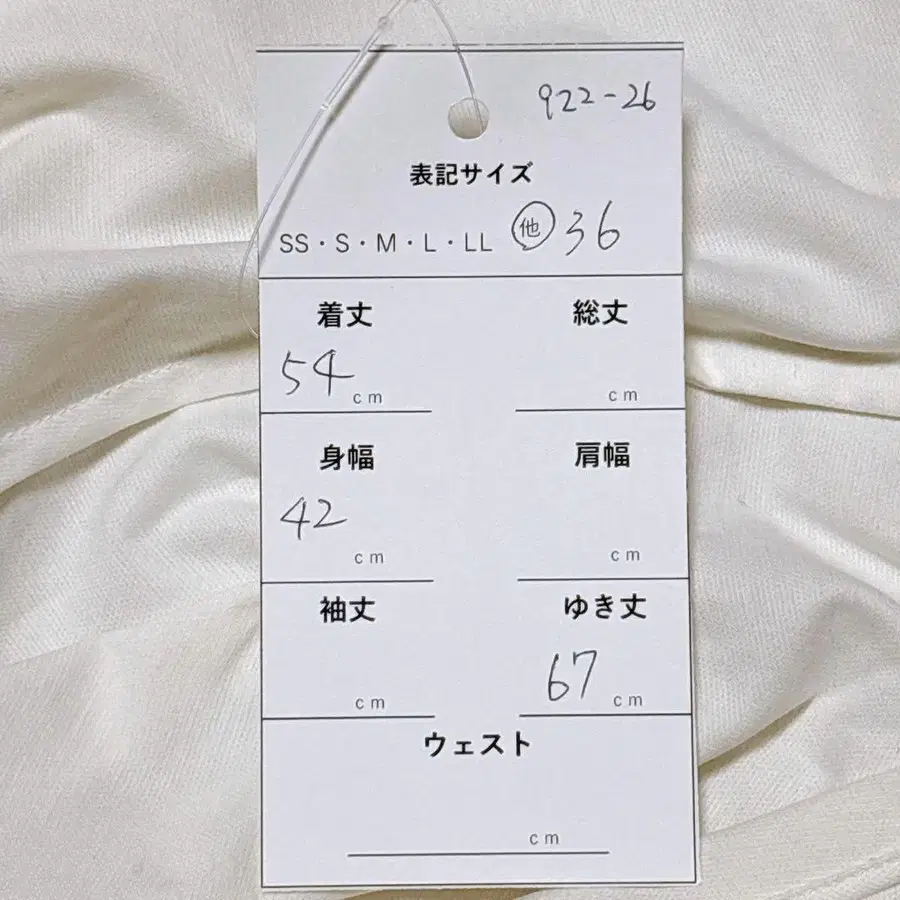 922-26
表記サイズ
SS・S・M・L・LL 他 36
着丈 総丈
54 cm cm
身幅 肩幅
42 cm cm
袖丈 ゆき丈
cm 67 cm
ウェスト
cm